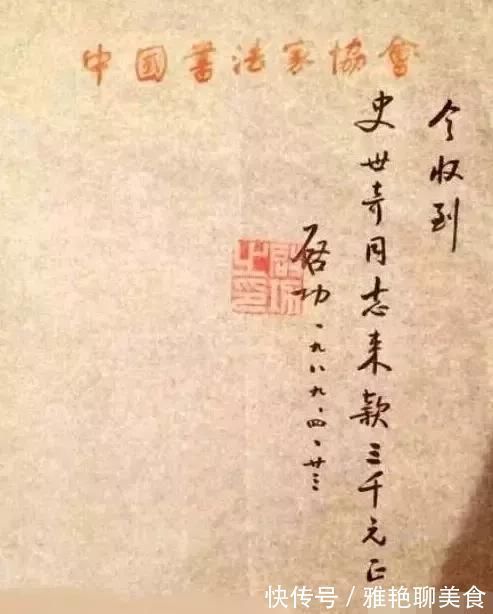 中國書法家協會
今收到
史世奇同志来款三千元正
启功 一九八九、四、廿三
快传号／雅艳聊美食